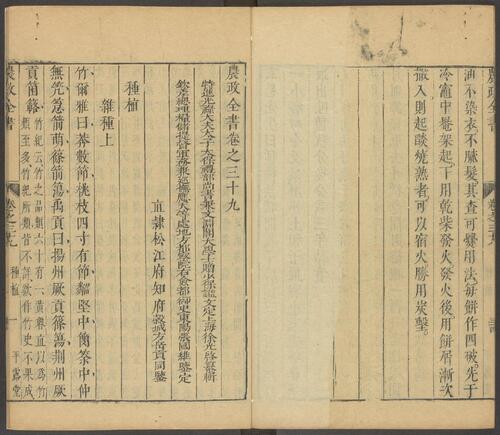 油不染衣不膩髮其查可爨用法每餅作四破先于
冷竈中疊架起下用乾柴發火發火後用餅屑漸次
撒入則起燄燒熟者可以宿火勝用炭墼
農政全書
卷之三十九
農政全書卷之三十九
特進光祿大夫太子太保禮部尚書兼文淵閣大學士贈少保謚文定上海徐光啓纂輯
欽差總理糧儲提督軍務兼巡撫應天等處地方都察院右僉都御史東陽張國維鑒定
直隸松江府知府穀城方岳貢同鑒
種植
雜種上
竹爾雅曰莽數節桃枝四寸有節粼堅中簢筡中仲
無笐䈚箭萌篠箭簜禹貢曰揚州厥貢篠簜荆州厥
貢箘簵竹紀云竹之品類六十有一黃魯直以爲竹
類至多竹紀所類皆不詳欲作竹史不果成
農政全書
卷之三十九
種植
一
平露堂